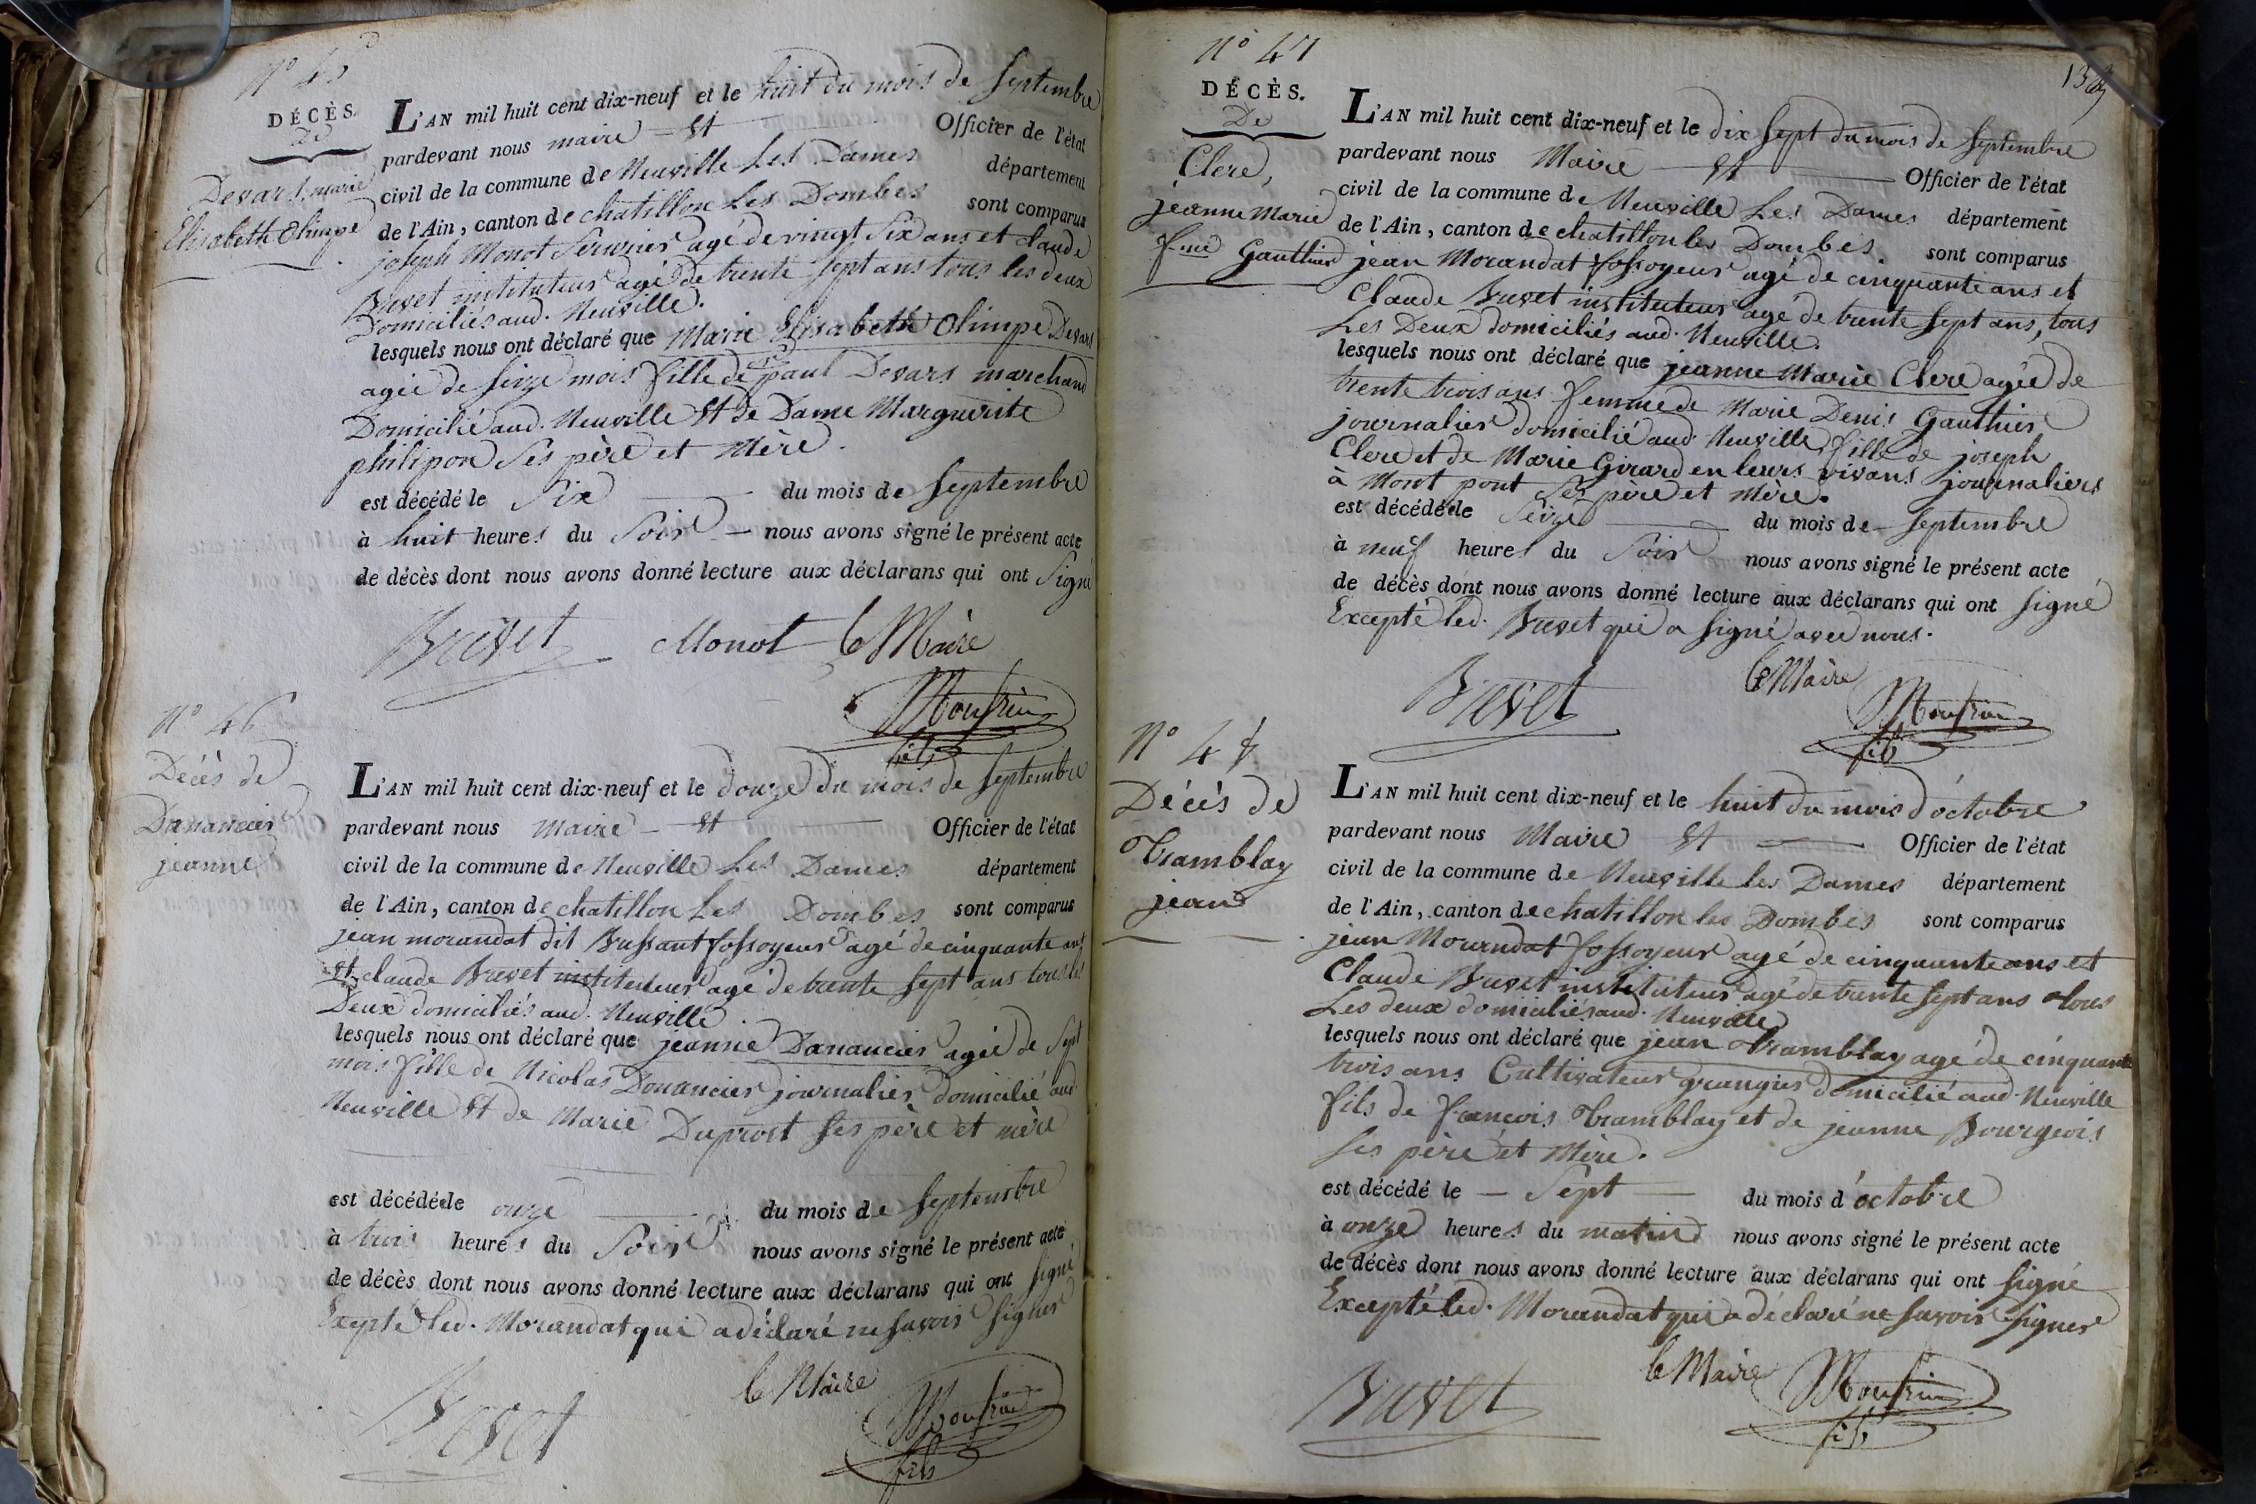 N° 45
DÉCÈS.
De
Devars, marie
Elisabeth Olimpe
L'AN mil huit cent dix-neuf et le huit du mois de Septembre
pardevant nous maire et Officier de l'état
civil de la commune de Neuville Les Dames département
de l'Ain, canton de chatillon Les Dombes sont comparus
joseph Monot Serurier agé de vingt Six ans et claude
Buvet instituteur agé de trente Sept ans tous les deux
Domiciliés aud. Neuville.
lesquels nous ont déclaré que Marie Elisabeth Olimpe Devars
agée de Seize mois fille de paul Devars marchand
Domicilié aud. Neuville Et de Dame Marguerite
philipon Ses père et Mère.
est décédé le Six du mois de Septembre
à huit heures du Soir nous avons signé le présent acte
de décès dont nous avons donné lecture aux déclarans qui ont Signé
Buvet Monot le Maire
fils
N° 46
Décès de
Danancier
jeanne
L'AN mil huit cent dix-neuf et le douze du mois de Septembre
pardevant nous Maire Et Officier de l'état
civil de la commune de Neuville Les Dames département
de l'Ain, canton de chatillon Les Dombes sont comparus
jean morandat dit Bussant fossoyeur agé de cinquante ans
Et claude Buvet instituteur agé de trente Sept ans tous les
Deux domiciliés aud. Neuville.
lesquels nous ont déclaré que jeanne Danancier agée de Sept
mois fille de Nicolas Donancier journalier domicilié aud
Neuville Et de Marie Duprost Ses père et mère
est décédée le onze du mois de Septembre
à trois heures du Soir nous avons signé le présent acte
de décès dont nous avons donné lecture aux déclarans qui ont signé
Excepté led. Morandat qui a déclaré ne savoir Signer
Buvet le Maire
fils
N° 47
DÉCÈS.
De
Clere,
jeanne Marie
f.me Gauthier
L'AN mil huit cent dix-neuf et le dix Sept du mois de Septembre
pardevant nous Maire Et Officier de l'état
civil de la commune de Neuville Les Dames département
de l'Ain, canton de chatillon les Dombes. sont comparus
jean Morandat fossoyeur agé de cinquante ans et
Claude Buvet instituteur agé de trente Sept ans, tous
Les Deux domiciliés aud. Neuville.
lesquels nous ont déclaré que jeanne Marie Clere agée de
trente trois ans femme de Marie Denis Gauthier
journalier domicilié aud. Neuville fille de joseph
Clere et de Marie Girard en leurs vivans journaliers
à Mont pont Ses père et Mère.
est décédée le Seize du mois de Septembre
à neuf heures du Soir nous avons signé le présent acte
de décès dont nous avons donné lecture aux déclarans qui ont signé
Excepté led. Buvet qui a signé avec nous.
Buvet le Maire
fils
N° 48
Décès de
Tramblay
jean
L'AN mil huit cent dix-neuf et le huit du mois d'octobre
pardevant nous Maire Et Officier de l'état
civil de la commune de Neuville les Dames département
de l'Ain, canton de chatillon les Dombes sont comparus
jean Mourandat fossoyeur agé de cinquante ans et
Claude Buvet instituteur agé de trente Sept ans tous
Les deux domiciliés aud. Neuville
lesquels nous ont déclaré que jean Tramblay agé de cinquante
trois ans Cultivateur grangier domicilié aud. Neuville
fils de francois Tramblay et de jeanne Bourgeois
Ses père et Mère.
est décédé le Sept du mois d'octobre
à onze heures du matin nous avons signé le présent acte
de décès dont nous avons donné lecture aux déclarans qui ont signé
Excepté led. Morandat qui a déclaré ne Savoir Signer
Buvet le Maire
fils